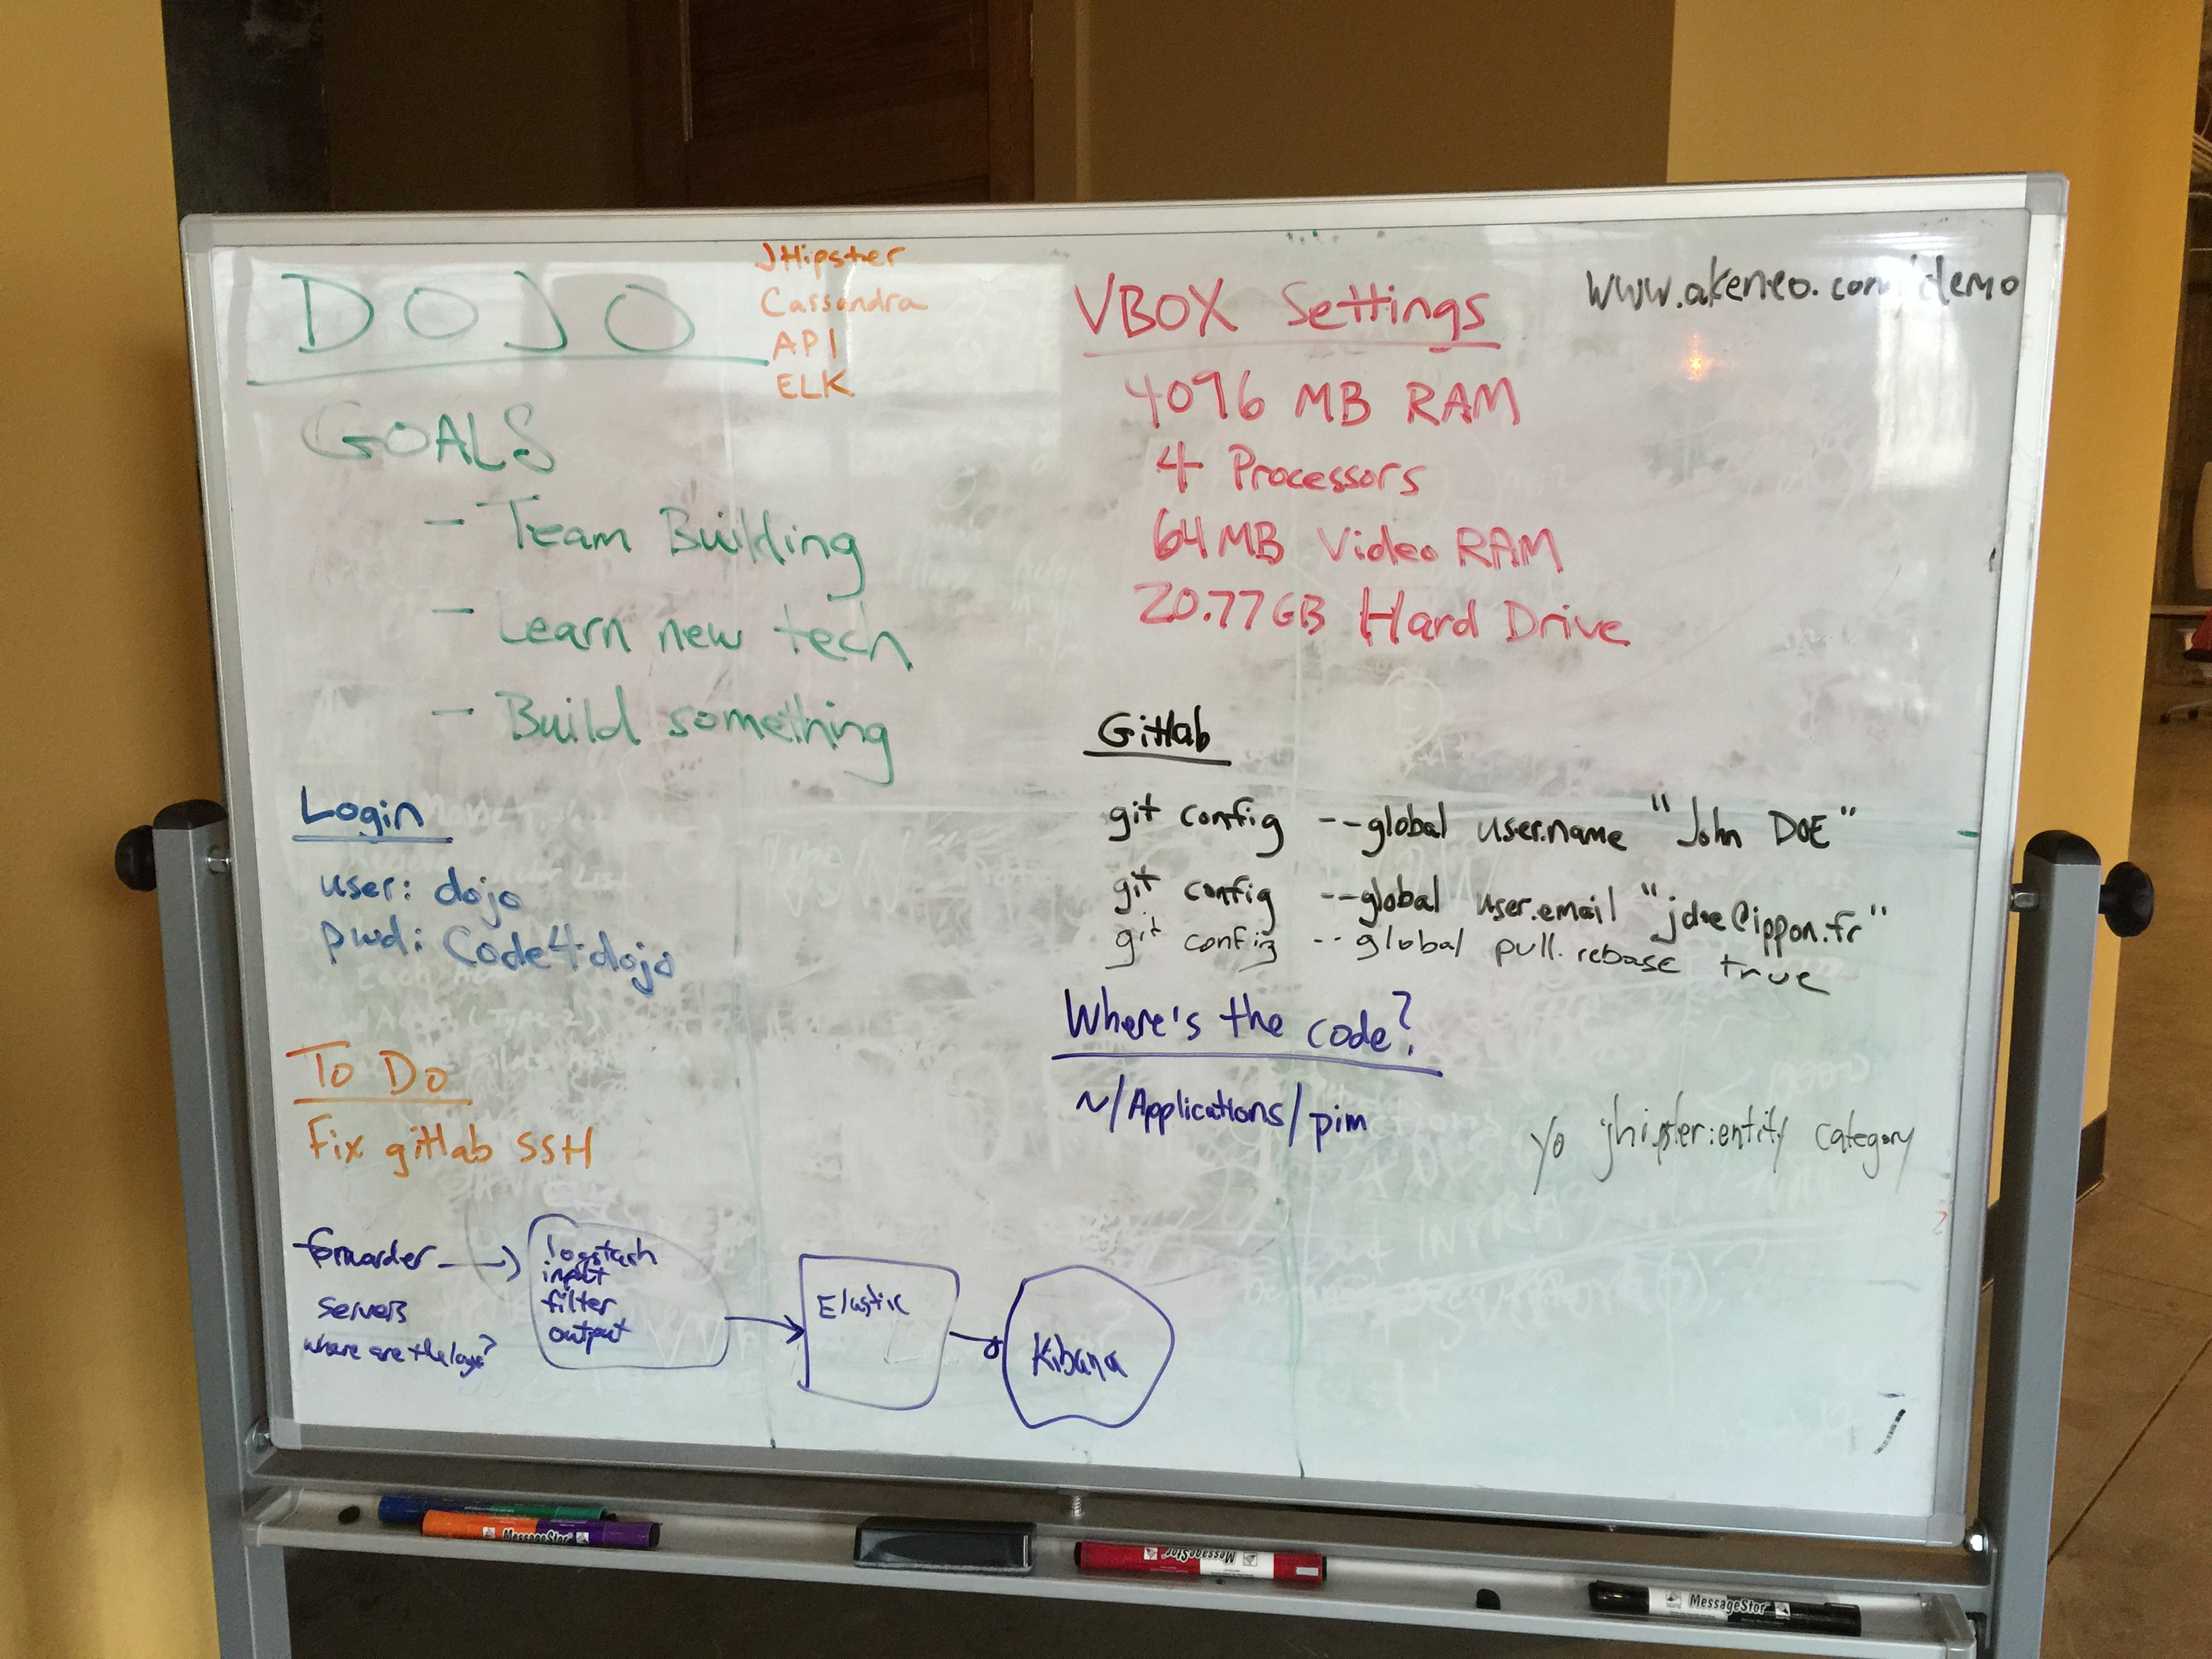 DOJO
JHipster
Cassandra
API
ELK
GOALS
- Team Building
- Learn new tech
- Build something
Login
user: dojo
pwd: Code4dojo
To Do
Fix gitlab SSH
forwarder
servers
where are the logs?
logstash
input
filter
output
Elastic
Kibana
VBOX Settings
4096 MB RAM
4 Processors
64MB Video RAM
20.77GB Hard Drive
www.akeneo.com/demo
Gitlab
git config --global user.name "John DOE"
git config --global user.email "jdoe@ippon.fr"
git config --global pull.rebase true
Where's the code?
~/Applications/pim
yo jhipster:entity category
MessageStor
MessageStor
MessageStor